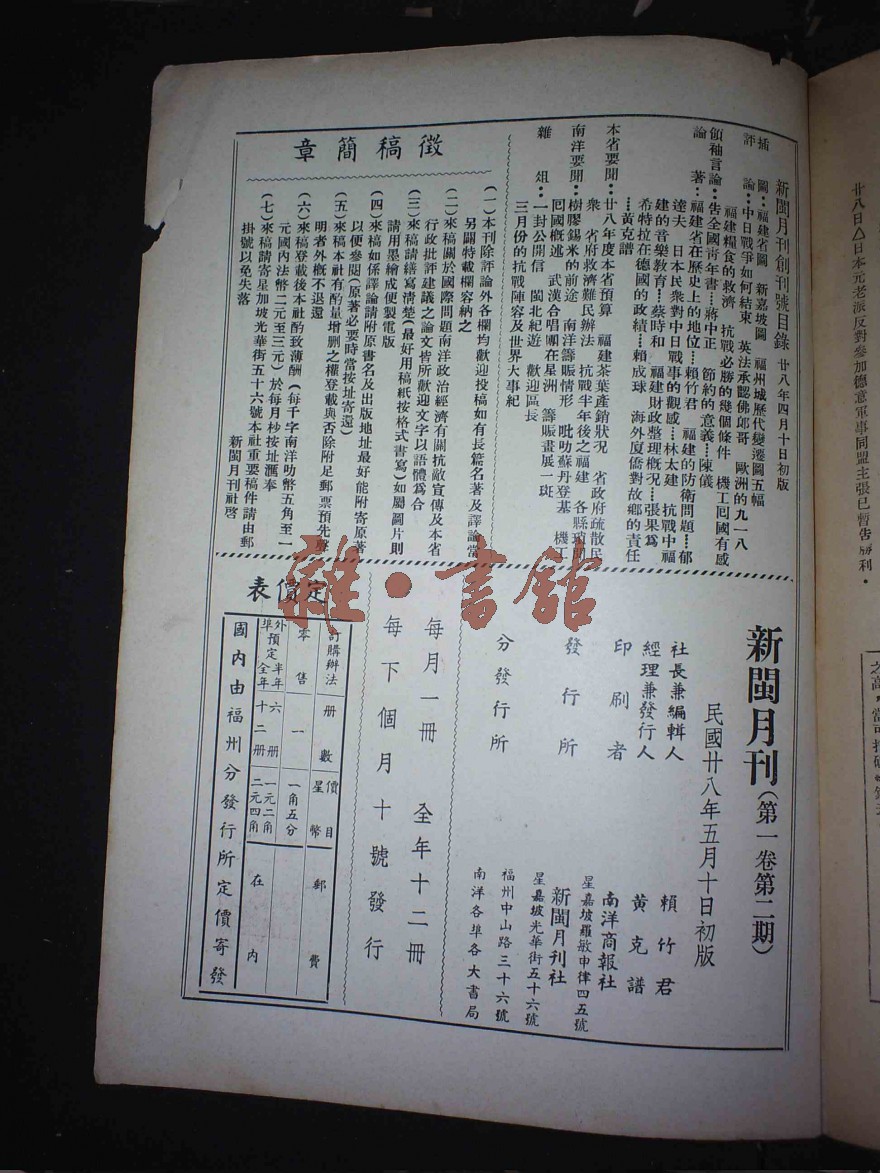 新閩月刊創刊號目錄 廿八年四月十日初版
插圖：福建省圖 新嘉坡圖 福州城歷代變遷圖五幅
評論：中日戰爭如何結束 英法承認佛郎哥 歐洲的九一八
福建糧食的救濟 抗戰必勝的幾個條件 機工囘國有感
領袖言論：告全國靑年書…蔣中正 節約的意義…陳儀
論著：福建省在歷史上的地位…賴竹君 福建的防衛問題…郁
達夫 日本民衆對中日戰事的觀感…林太建 抗戰中福
建的音樂敎育…蔡時和 福建財政整理槪況…張果爲
希特拉在德國的政績…賴成球 海外廈僑對故鄉的責任
…黃克譜
本省要聞：廿八年度本省預算 福建茶葉產銷狀況 省政府疏散民
衆 省府救濟難民辦法 抗戰半年後之福建 各縣
南洋要聞：樹膠錫米的前途 南洋籌賑情形 吡叻蘇丹登基 機工
囘國槪述 武漢合唱團在星洲 籌賑畫展一斑
雜俎：一封公開信 閩北紀遊 歡迎區長
三月份的抗戰陣容及世界大事紀
徵稿簡章
（一）本刊除評論外各欄均歡迎投稿如有長篇名著及譯論當
另闢特載欄容納之
（二）來稿關於國際問題南洋政治經濟有關抗敵宣傳及本省
行政批評建議之論文皆所歡迎文字以語體爲合
（三）來稿請繕寫淸楚（最好用稿紙按格式書寫）如屬圖片則
請用墨繪成便製電版
（四）來稿如係譯論請附原書名及出版地址最好能附寄原著
以便參閱（原著必要時當按址寄還）
（五）來稿本社有酌量增删之權登載與否除附足郵票預先聲
明者外槪不退還
（六）來稿登載後本社酌致薄酬（每千字南洋叻幣五角至一
元國內法幣二元至三元）於每月杪按址滙奉
（七）來稿請寄星加坡光華街五十六號本社重要稿件請由郵
掛號以免失落
新閩月刊社啓
新閩月刊（第一卷第二期）
民國廿八年五月十日初版
社長兼編輯人 賴竹君
經理兼發行人 黃克譜
印刷者 南洋商報社
星嘉坡羅敏申律四五號
發行所 新閩月刊社
星嘉坡光華街五十六號
分發行所 福州中山路三十六號
南洋各埠各大書局
每月一冊 全年十二冊
每下個月十號發行
定價表
訂購辦法 册數 價目 星幣 郵費
零售 一 一角五分
外埠預定 半年 六册 一元二角 在內
全年 十二册 二元四角
國內由福州分發行所定價寄發
廿八日△日本元老派反對參加德意軍事同盟主張已暫告勝利．
雜·書館